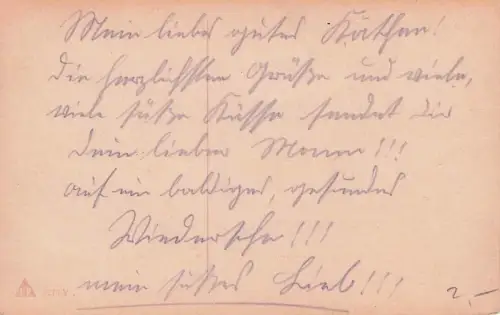 Mein liebes gutes Käthen!
Die herzlichsten Grüße und viele,
viele süße Küsse sendet Dir
Dein lieber Mann!!!
auf ein baldiges, gesundes
Wiedersehn!!!
mein süßes Lieb!!!
2,-